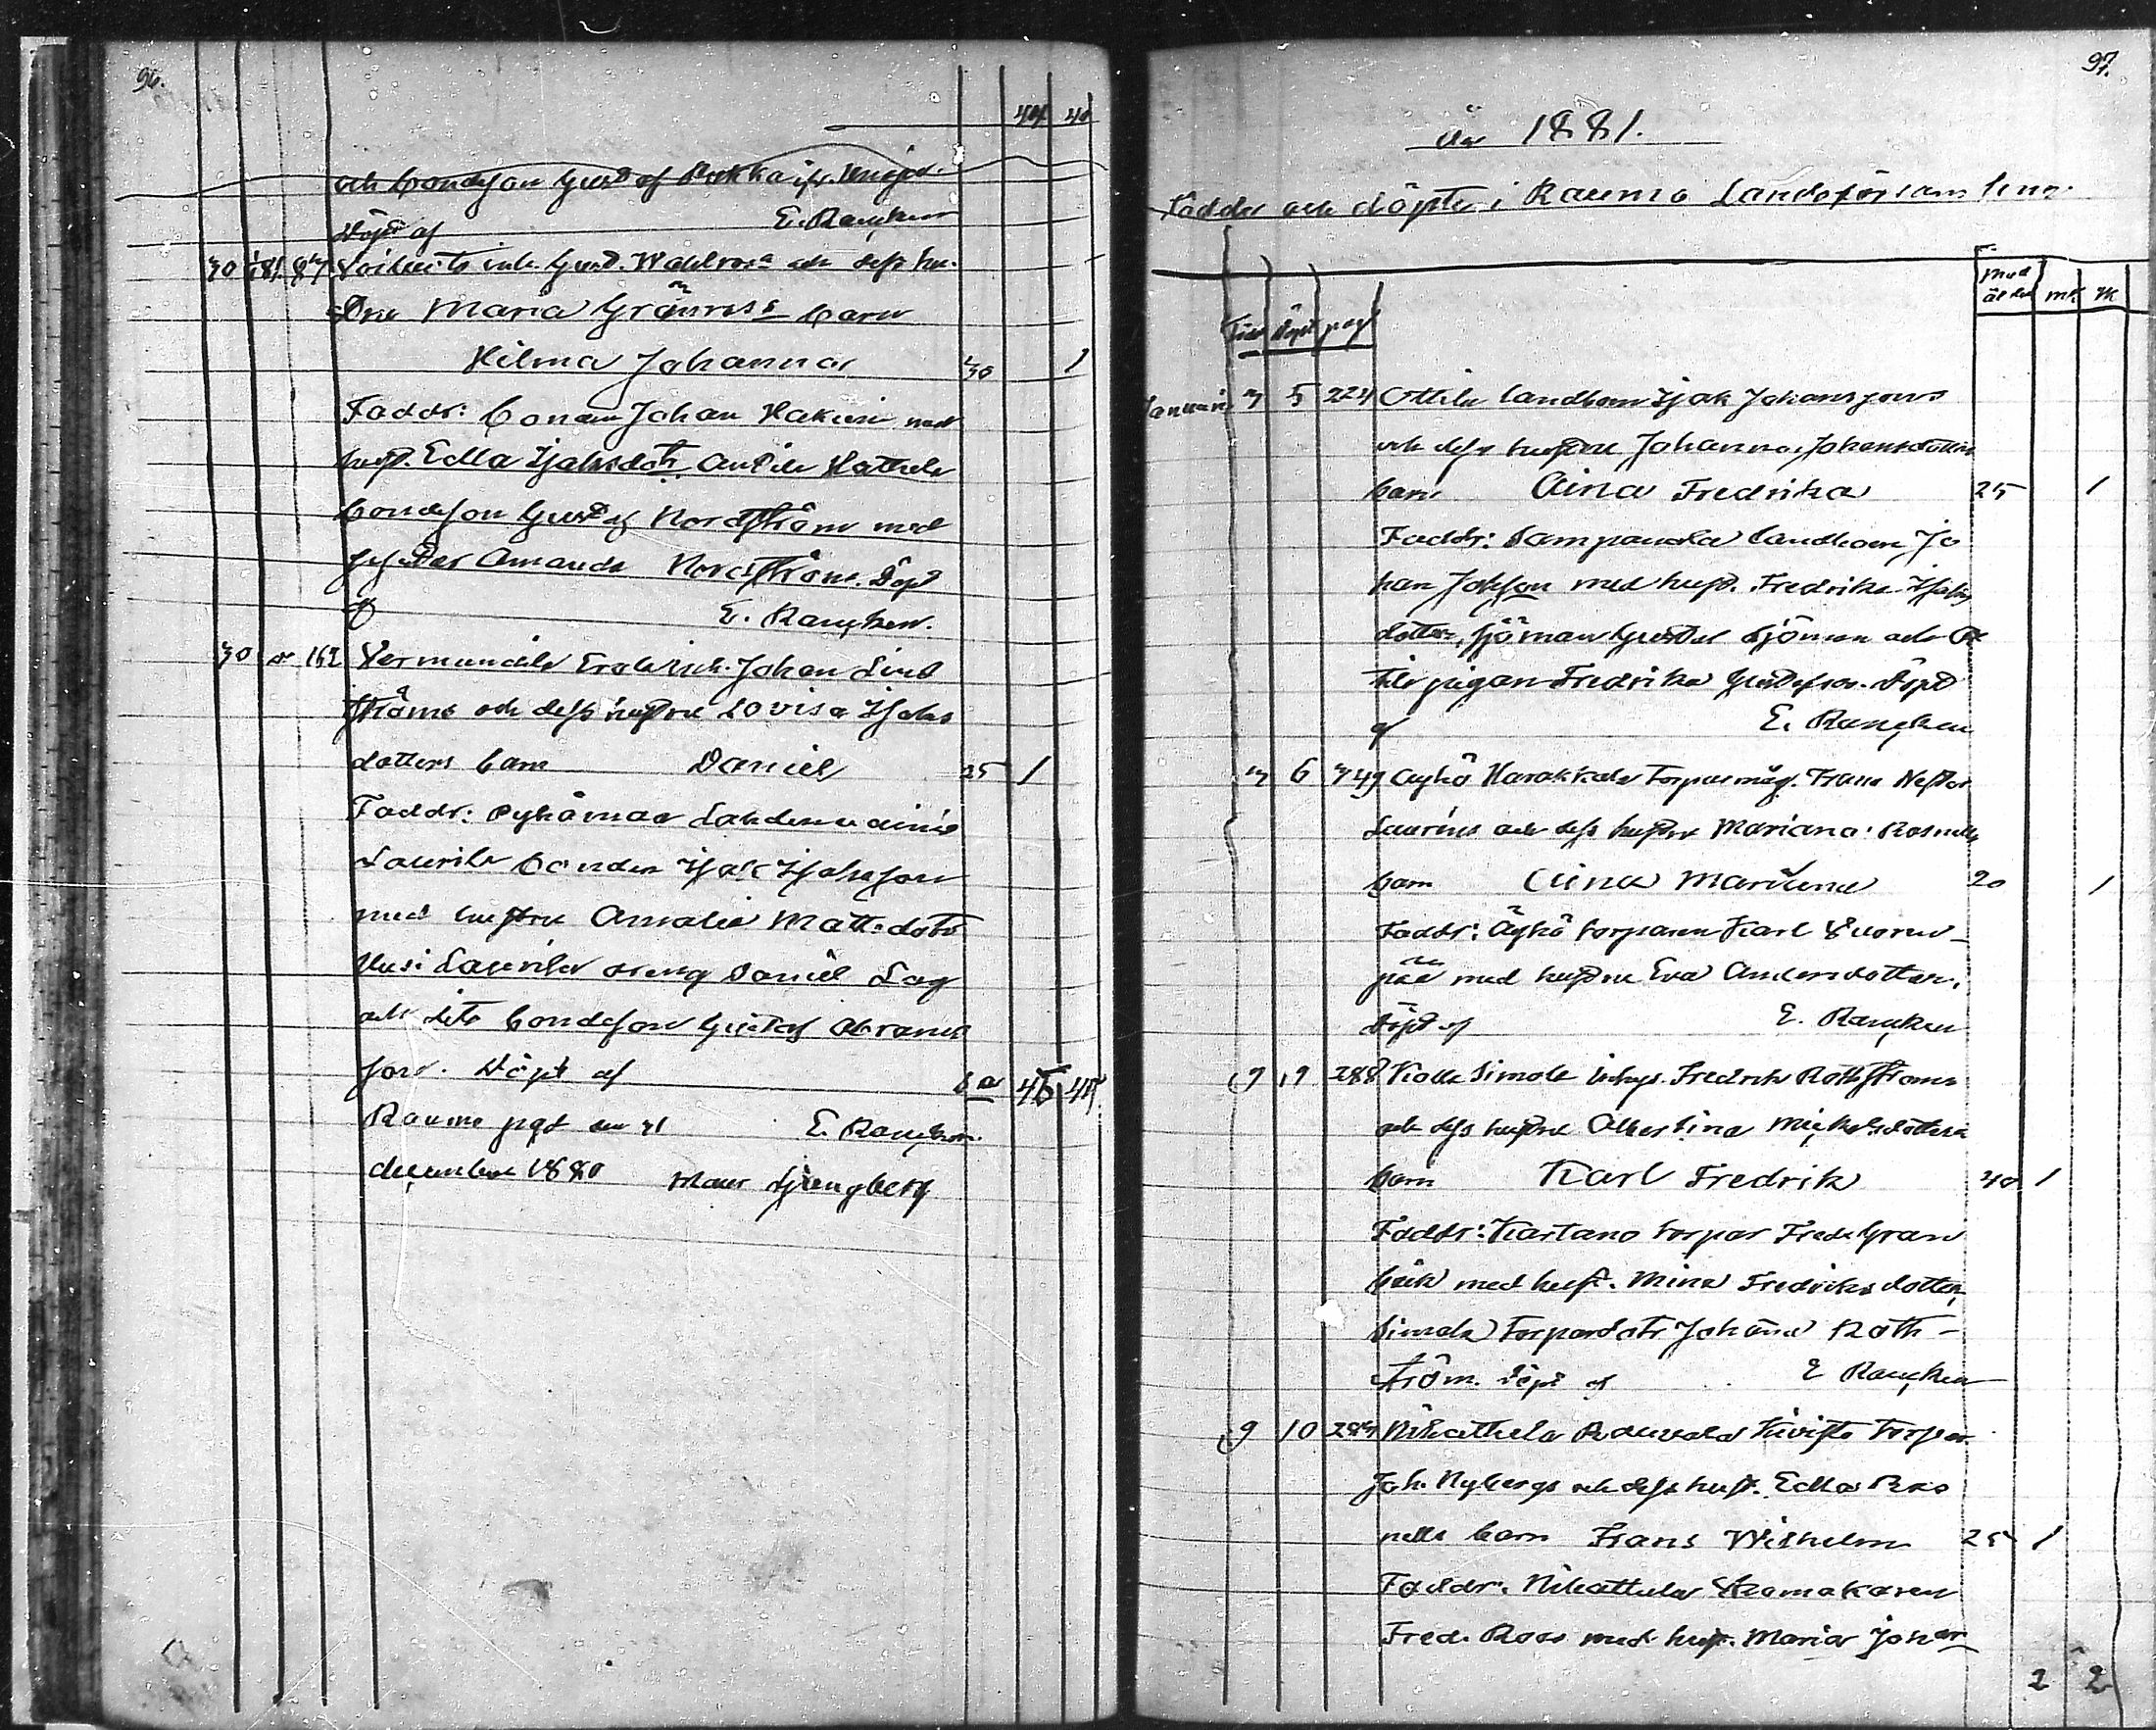 96.
44 40
och bondeson Gustaf Rokka ifr. Unaja.
Döpt af E. Rancken
30 1/81 87 Voiluoto inh. Gust. Wahlroos och dess hu-
stru Maria Grönroos barn
Hilma Johanna 30 1
Faddr: bonden Johan Hakuni med
hust. Edla Isaksdotr, Anttila Hattela
bondeson Gustaf Nordström med
Amanda Nordström. Döpt
af E. Rancken.
30 162 Vermundila Johan Lind
ströms och dess hustru Lovisa Isaks
dotters barn Daniel 25 1
Faddr: Pyhämaa
Laurila bonden Isak Isaksson
med hustru Amalia Matts dotr
Uusi Laurila dreng Daniel
och dito bondeson Gustaf Abrams
son. Döpt af 45 45
Raumo pgd den 31 E. Rancken.
december 1880 Ljungberg
97.
År 1881.
Födde och döpte i Raumo Landsförsamling.
Mod ålder mk. qk
Född Döpt pag
Januari 3 5 224 Ottila landbon Isak Johanssons
och dess hustru Johanna Johansdotters
barn Aina Fredrika 25 1
Faddr: Sampanala landboen Jo
han Jakson med hust. Fredrika Isaks
dotter, sjöman Gustaf Sjöman och Ot
tila pigan Fredrika Gustafsdr. Döpt
af E. Rancken
3 6 349 Äyhö Harakkala torparmåg. Frans Nestor
Laurins och dess hustru Mariana Rosnells
barn Aina Mariana 20 1
Faddr: Äyhö torparen Karl Vuoren-
pää med hustru Eva Andersdotter.
Döpt af E. Rancken
9 9 288 Kolla Simola inhys. Fredrik Rothströms
och dess hustru Albertina Mickelsdotters
barn Karl Fredrik 40 1
Faddr: Kartano torpar Fredr. Gran
bäck med hust. Mina Fredriksdotter,
Simola torpardotr Johanna Roth-
ström. Döpt af E Rancken
9 10 284 Nihattula Rauvola Kivistö torpar
Joh. Nybergs och dess hust. Edla Ros
nells barn Frans Wilhelm 25 1
Faddr: Nihattula skomakaren
Fred. Roos med hust. Maria Johan
2 2